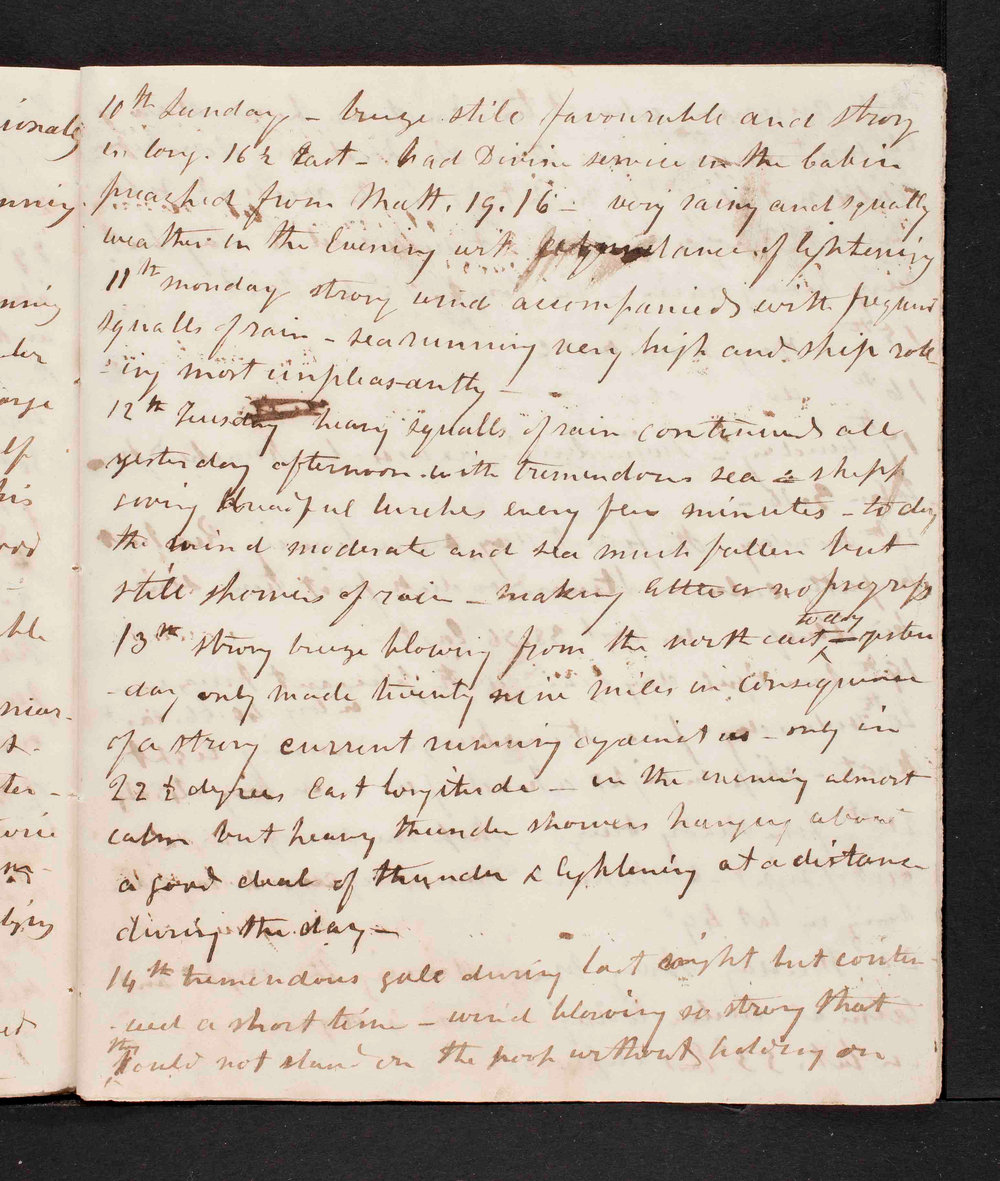 10th Sunday - breeze still favourable and strong
in long. 16½ East - had Divine service in the Cabin
preached from Matt. 19.16 - very rainy and squally
weather in the Evening with of lightening
11th monday strong wind accompanied with frequent
squalls of rain - sea running very high and ship roll-
-ing most unpleasantly -
12th Tuesday heavy squalls of rain continued all
yesterday afternoon with tremendous sea - shipp
giving dreadful lurches every few minutes - to day
the wind moderate and sea much fallen but
still showers of rain - making little or no progress
13th strong breeze blowing from the north east to day - yester
-day only made twenty nine miles in consequence
of a strong current running against us - only in
22½ degrees East longitude - in the evening almost
calm but heavy thunder showers hanging about
a good deal of thunder & lightening at a distance
during the day -
14th tremendous gale during last night but contin-
-ued a short time - wind blowing so strong that
they could not stand on the poop without holding on
ionate
nning
nning
arge
elf
his
ood
able
near-
ter-
lying